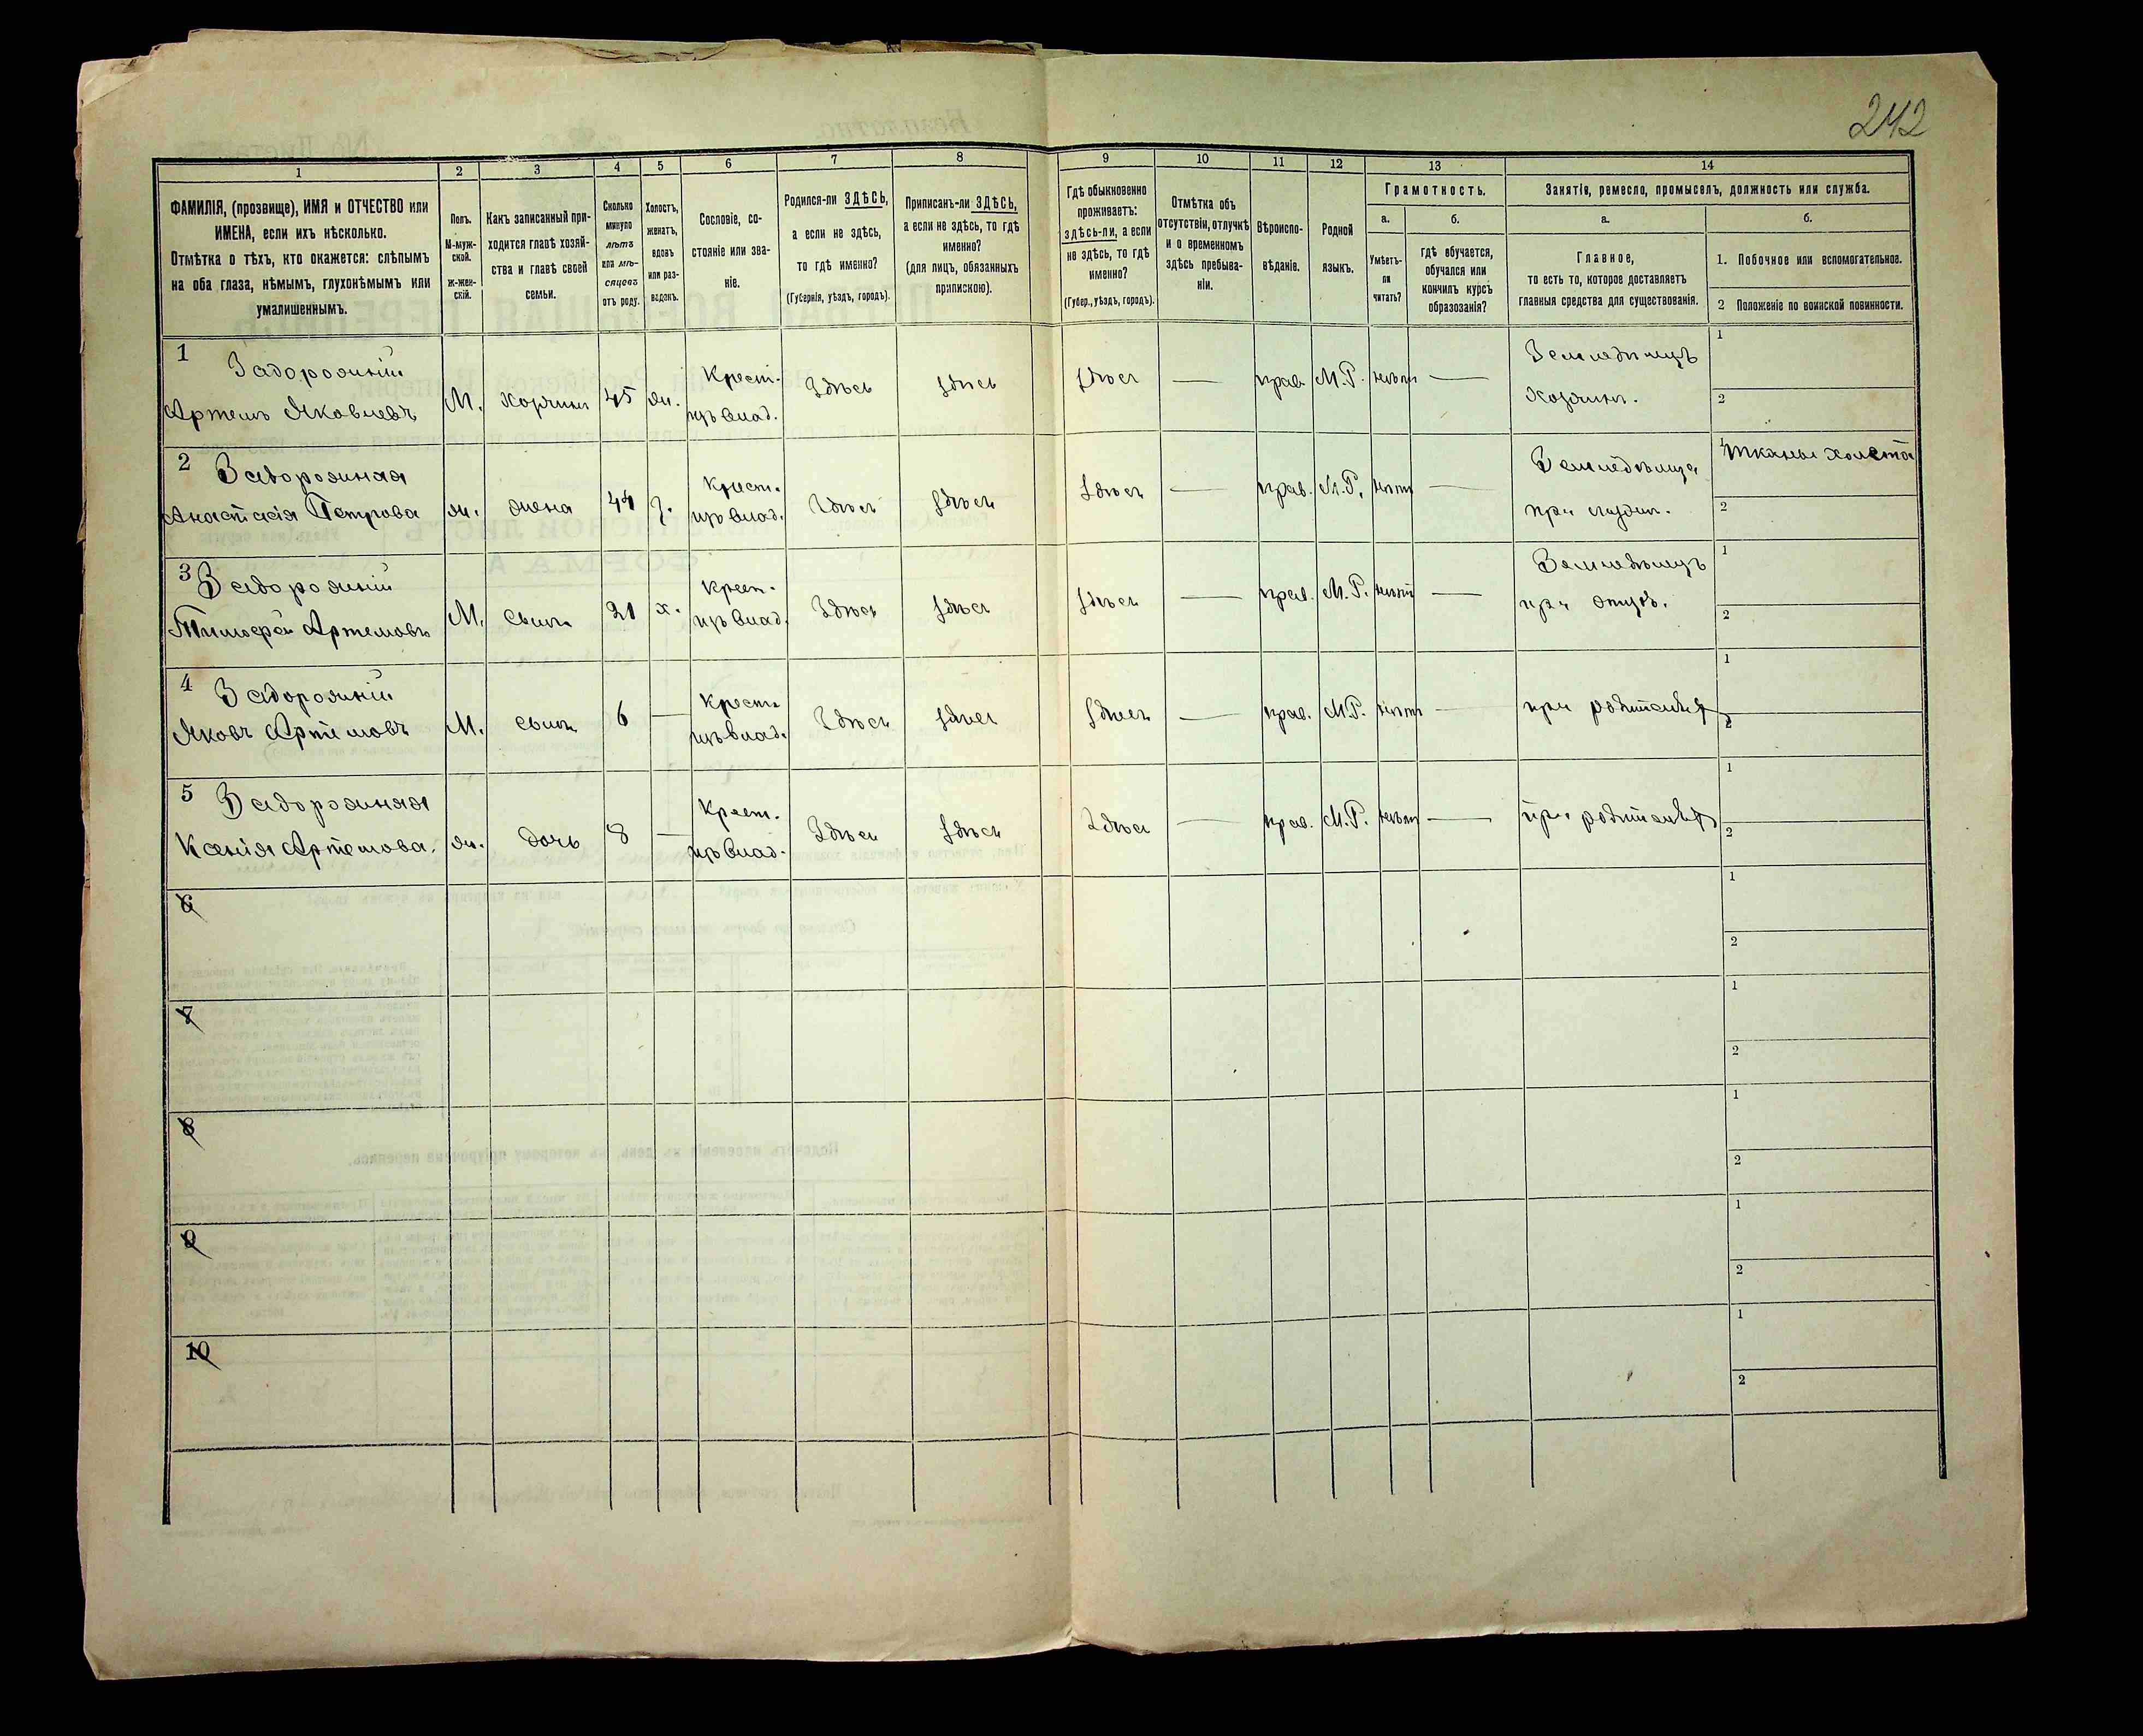 242
1 2 3 4 5 6 7 8 9 10 11 12 13 14
ФАМИЛІЯ, (прозвище), ИМЯ и ОТЧЕСТВО или
ИМЕНА, если ихъ нѣсколько.
Отмѣтка о тѣхъ, кто окажется: слѣпымъ
на оба глаза, нѣмымъ, глухонѣмымъ или
умалишеннымъ.
Полъ.
М-муж-
ской.
ж-жен-
скій.
Какъ записанный при-
ходится главѣ хозяй-
ства и главѣ своей
семьи.
Сколько
минуло
лѣтъ
или мѣ-
сяцевъ
отъ роду.
Холостъ,
женатъ,
вдовъ
или раз-
веденъ.
Сословіе, со-
стояніе или зва-
ніе.
Родился-ли ЗДѢСЬ,
а если не здѣсь,
то гдѣ именно?
(Губернія, уѣздъ, городъ).
Приписанъ-ли ЗДѢСЬ,
а если не здѣсь, то гдѣ
именно?
(для лицъ, обязанныхъ
припискою).
Гдѣ обыкновенно
проживаетъ:
здѣсь-ли, а если
не здѣсь, то гдѣ
именно?
(Губер., уѣздъ, городъ).
Отмѣтка объ
отсутствіи, отлучкѣ
и о временномъ
здѣсь пребыва-
ніи.
Вѣроиспо-
вѣданіе.
Родной
языкъ.
Грамотность.
а.
Умѣетъ-
ли
читать?
б.
гдѣ обучается,
обучался или
кончилъ курсъ
образованія?
Занятіе, ремесло, промыселъ, должность или служба.
а.
Главное,
то есть то, которое доставляетъ
главныя средства для существованія.
б.
1. Побочное или вспомогательное.
2 Положеніе по воинской повинности.
1 Задорожній Крест. Земледѣлецъ 1
Артемъ Яковлевъ М. хозяинъ 45 ж. изъ влад. Здѣсь здѣсь здѣсь — прав. М.Р. нѣтъ — хозяинъ. 2
2 Задорожная Крест. Земледѣлица 1 тканье холста
Анастасія Петрова ж. жена 44 з. изъ влад. Здѣсь здѣсь здѣсь — прав. М.Р. нѣтъ — при 2
3 Задорожній Крест. Земледѣлецъ 1
Тимофей Артемовъ М. сынъ 21 х. изъ влад. Здѣсь здѣсь здѣсь — прав. М.Р. нѣтъ — при отцѣ. 2
4 Задорожній Крест. 1
Яковъ Артемовъ М. сынъ 6 — изъ влад. Здѣсь здѣсь здѣсь — прав. М.Р. нѣтъ — при родителях 2
5 Задорожная Крест. 1
Ксенія Артемова. ж. дочь 8 — изъ влад. Здѣсь здѣсь Здѣсь — прав. М.Р. нѣтъ — при родителях 2
6 1
2
7 1
2
8 1
2
9 1
2
10 1
2